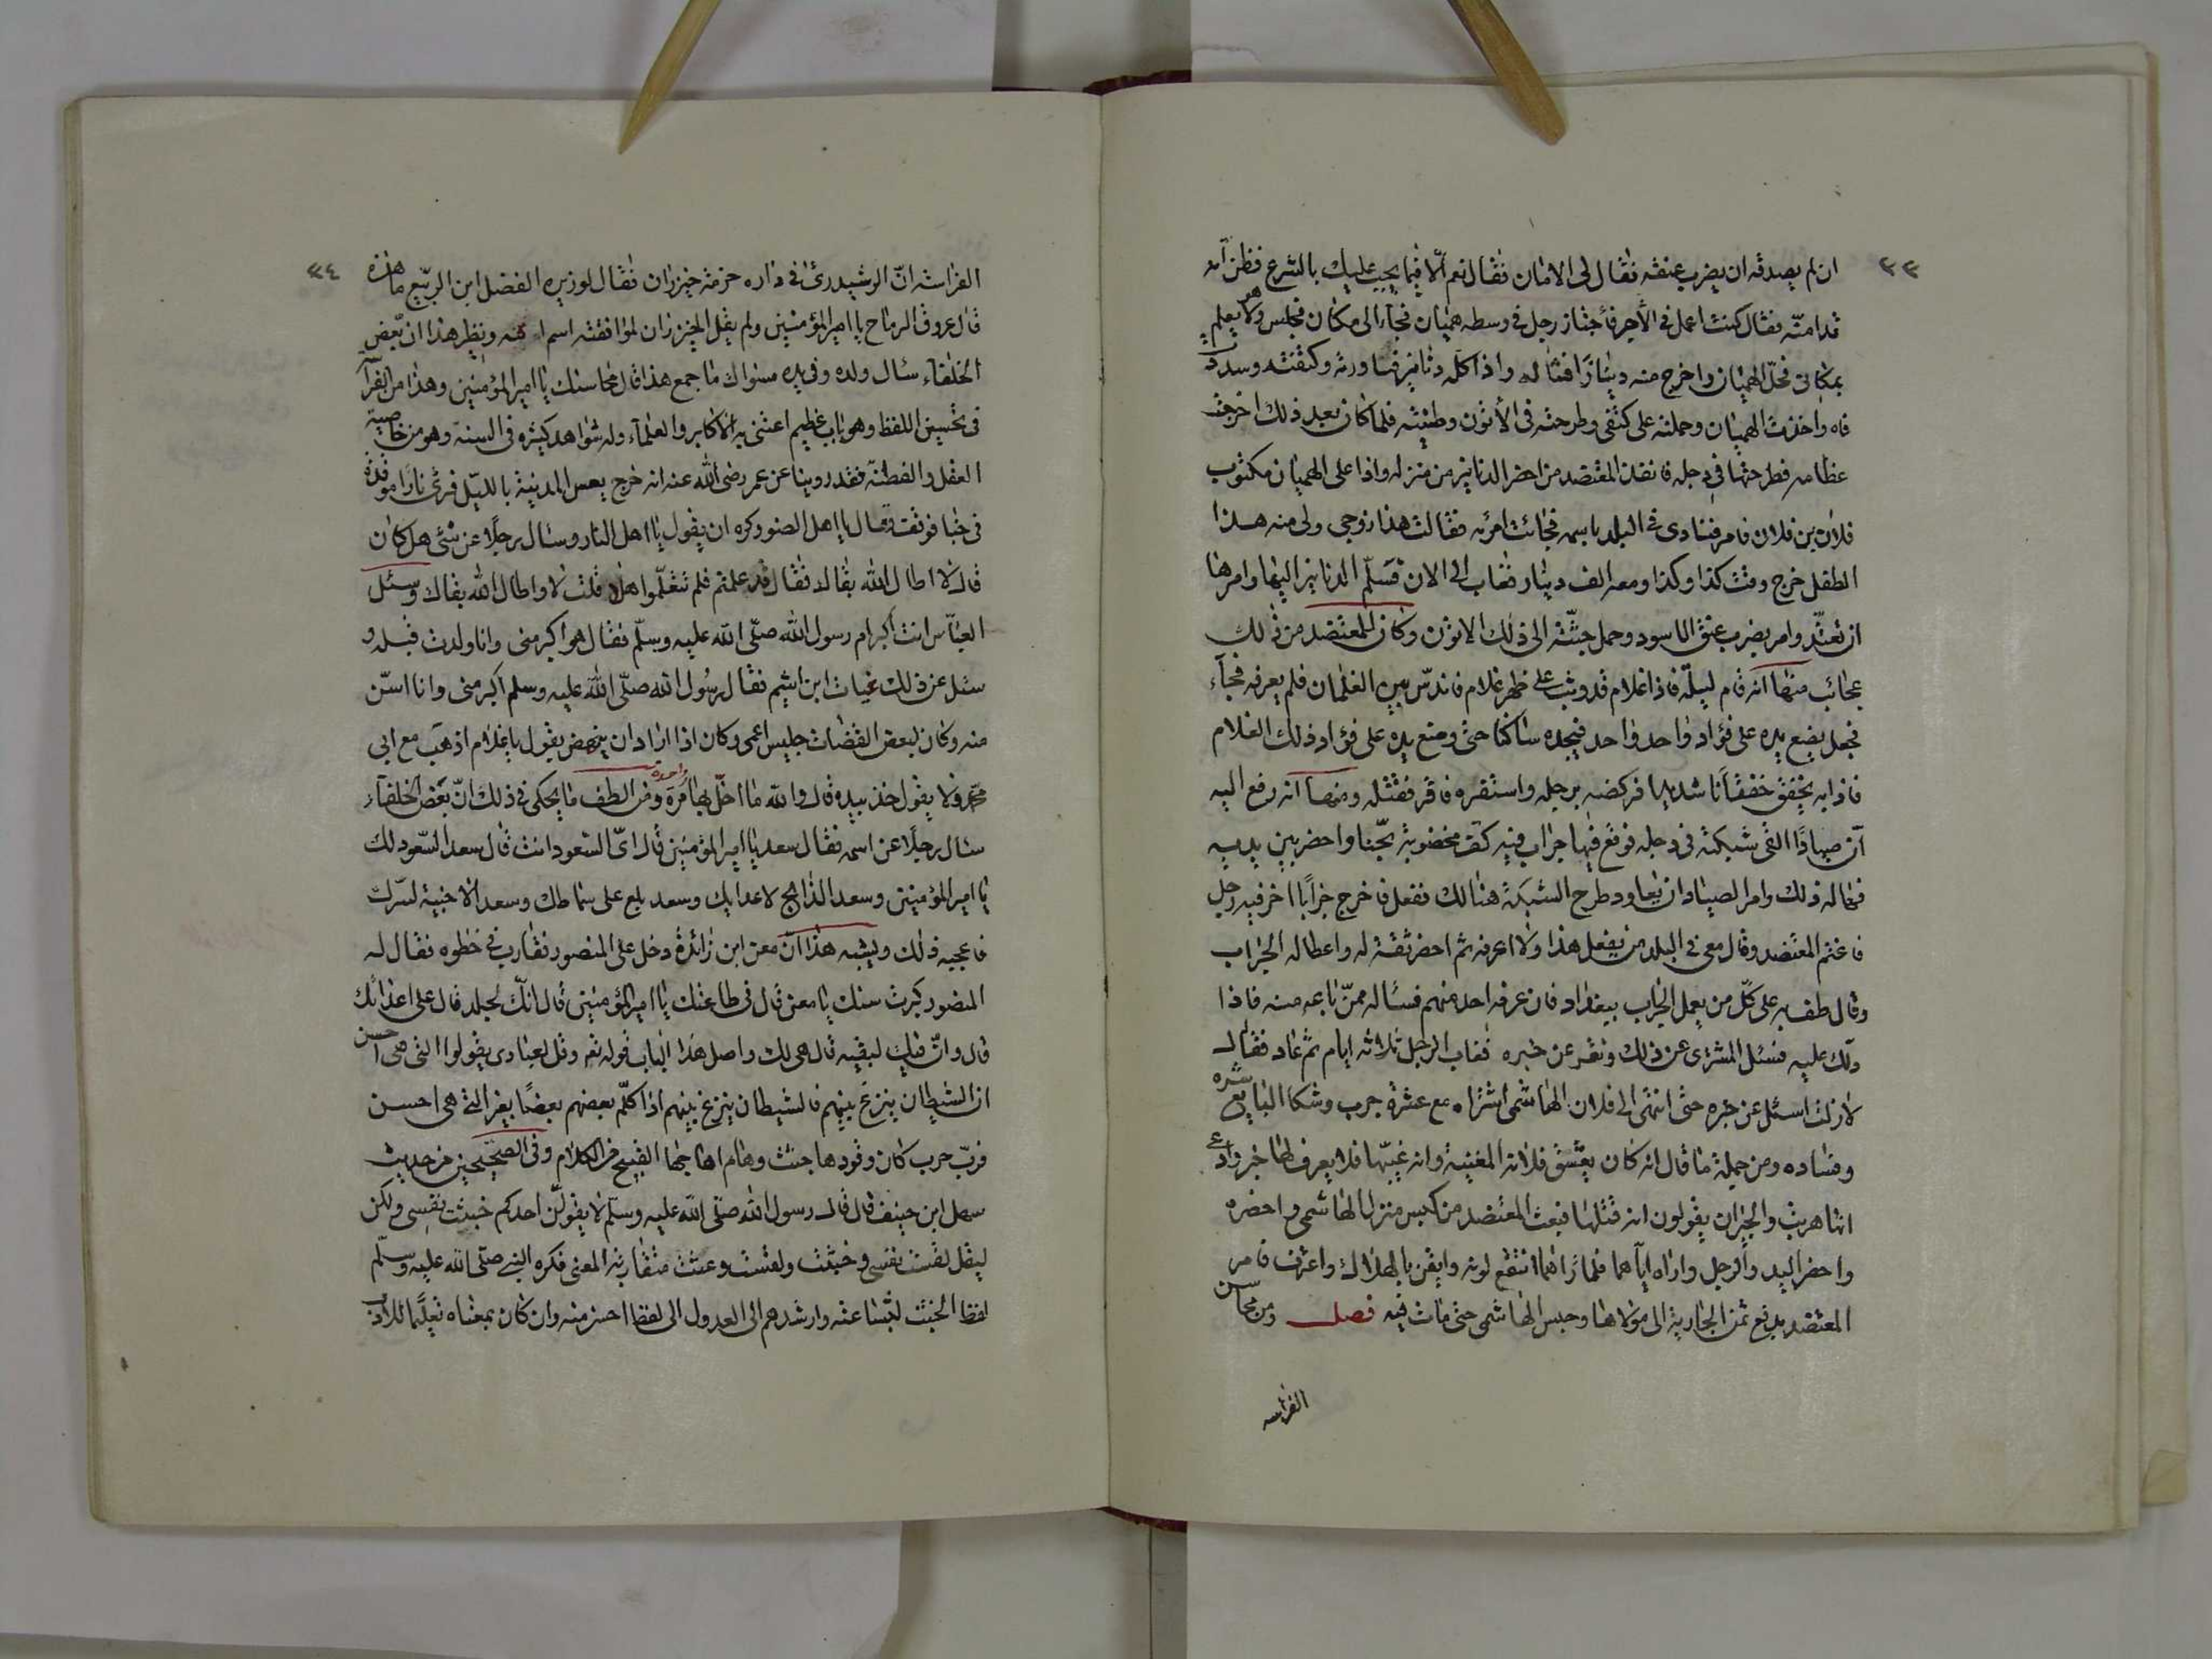 ٢٣
ان لم يصدقه ان يضرب عنقه فقال لى الامان فقال نعم الا فيما يجب عليك بالشرع فظن انه
قد امنه فقال كنت اعمل فى الأجر فأجتاز رجل فى وسطه هميان فجآء الى مكان فجلس وهو لا يعلم
بمكانى فحل الهميان واخرج منه دينارا واذا كله دنانير فثاورته وكتفته وسددت
فاه واخذت الهميان وحملته على كتفى وطرحته فى الأتون وطينته فلما كان بعد ذلك اخرجت
عظامه فطرحتها فى دجله فانفذ المعتضد من احضر الدنانير من منزله واذا على الهميان مكتوب
فلان بن فلان فامر فنادى فى البلد باسمه فجائت امرئه فقالت هذا زوجى ولى منه هذا
الطفل خرج وقت كذا وكذا ومعه الف دينار فغاب الى الان فسلم الدنانير اليها وامرها
ان تعتد وامر بضرب عنق الاسود وحمل جثته الى ذلك الاتون وكان للمعتضد من ذلك
عجائب منها انه قام ليلة فاذا غلام قد وثب على ظهر غلام فاندس بين الغلمان فلم يعرفه فجآء
فجعل يضع يده على فؤاد واحد واحد فيجده ساكنا حتى وضع يده على فؤاد ذلك الغلام
فاذا به يخفق خفقانا شديدا فركضه برجله واستقره فاقر فقتله ومنها انه رفع اليه
ان صيادا القى شبكته فى دجله فوقع فيها جراب فيه كف مخضوبة بحنا واحضر بين يديه
فهاله ذلك وامر الصياد ان يعاود طرح الشبكة هنالك ففعل فاخرج جرابا اخر فيه رجل
فاغتم المعتضد وقال معى فى البلد من يفعل هذا ولا اعرفه ثم احضر ثقة له واعطاله الجراب
وقال طف به على كل من يعمل الجراب ببغداد فان عرفه احد منهم فسئاله ممن باعه منه فاذا
دلك عليه فسئل المشترى عن ذلك ونقر عن خبره فغاب الرجل ثلاثه ايام ثم عاد فقال
لازلت اسئل عن خبره حتى انتهى الى فلان الهاشمى اشتراه مع عشرة جرب وشكا البايع شره
وفساده ومن جملة ما قال انه كان يعشق فلانه المغنية وانه غيبها فلا يعرف لها خبر وادعى
انها هربت والجيران يقولون انه قتلها فبعث المعتضد من كبس منزل الهاشمى واحضره
واحضر اليد والرجل واراه اياهما فلما راهما انتقع لونه وايقن بالهلاك واعترف فامر
المعتضد بدفع ثمن الجارية الى مولاها وحبس الهاشمى حتى مات فيه فصل ومن محاسن
الفراسه
٢٤
الفراسه ان الرشيد رئا فى داره حزمة خيزران فقال لوزيره الفضل ابن الربيع ما هذه
قال عروق الرماح يا امير المؤمنين ولم يقل الخيزران لموافقته اسم امه ونظير هذا ان بعض
الخلفاء سئال ولده وفى يده مسواك ما جمع هذا قال محاسنك يا امير المؤمنين وهذا من الفرآسة
فى تحسين اللفظ وهو باب عظيم اعتنى به الاكابر والعلمآء وله شواهد كثيره فى السنة وهو من خاصية
العقل والفطنة فقد روينا عن عمر رضى الله عنه انه خرج يعس المدينة بالليل فرئى نارا موقدة
فى خبا فوقف وقال يا اهل الضو وكره ان يقول يا اهل النار وسئال رجلا عن شئى هل كان
قال لا اطال الله بقاك فقال قد علمتم فلم تتعلموا هلا قلت لا واطال الله بقاك وسئل
العباس انت اكبر ام رسول الله صلى الله عليه وسلم فقال هو اكبر منى وانا ولدت قبله و
سئل عن ذلك غياث ابن اشيم فقال رسول الله صلى الله عليه وسلم اكبر منى وانا اسن
منه وكان لبعض القضات جليس اعمى وكان اذا اراد ان ينهض يقول يا غلام اذهب مع ابى
محمد ولا يقول خذ بيده قال والله ما اخل بها مرة واحدة ومن الطف ما يحكى فى ذلك ان بعض الخلفآء
سئال رجلا عن اسمه فقال سعد يا امير المؤمنين قال اى السعود انت قال سعد السعود لك
يا امير المؤمنين وسعد الذابح لاعدايك وسعد بلع على سماطك وسعد الاخبية لسرك
فاعجبه ذلك ويشبه هذا ان معن ابن زائدة دخل على المنصور فقارب فى خطوه فقال له
المنصور كبرت سنك يا معن قال فى طاعتك يا امير المؤمنين قال انك لجلد قال على اعدائك
قال وان فيك لبقيه قال هى لك واصل هذا الباب قوله تعه وقل لعبادى يقولوا التى هى احسن
ان الشيطان ينزغ بينهم فالشيطان ينزغ بينهم اذا كلم بعضهم بعضا بغير التى هى احسن
فرب حرب كان وقودها جثث وهام اهاجها القبيح من الكلام وفى الصحيحين من حديث
سهل ابن حنيف قال قال رسول الله صلى الله عليه وسلم لا يقولن احدكم خبثت نفسى ولكن
ليقل لقست نفسى وخبثت ولقست وغثت متقاربة المعنى فكره النبى صلى الله عليه وسلم
لفظ الخبث لبشاعته وارشدهم الى العدول الى لفظ احسن منه وان كان بمعناه تعليما للادب